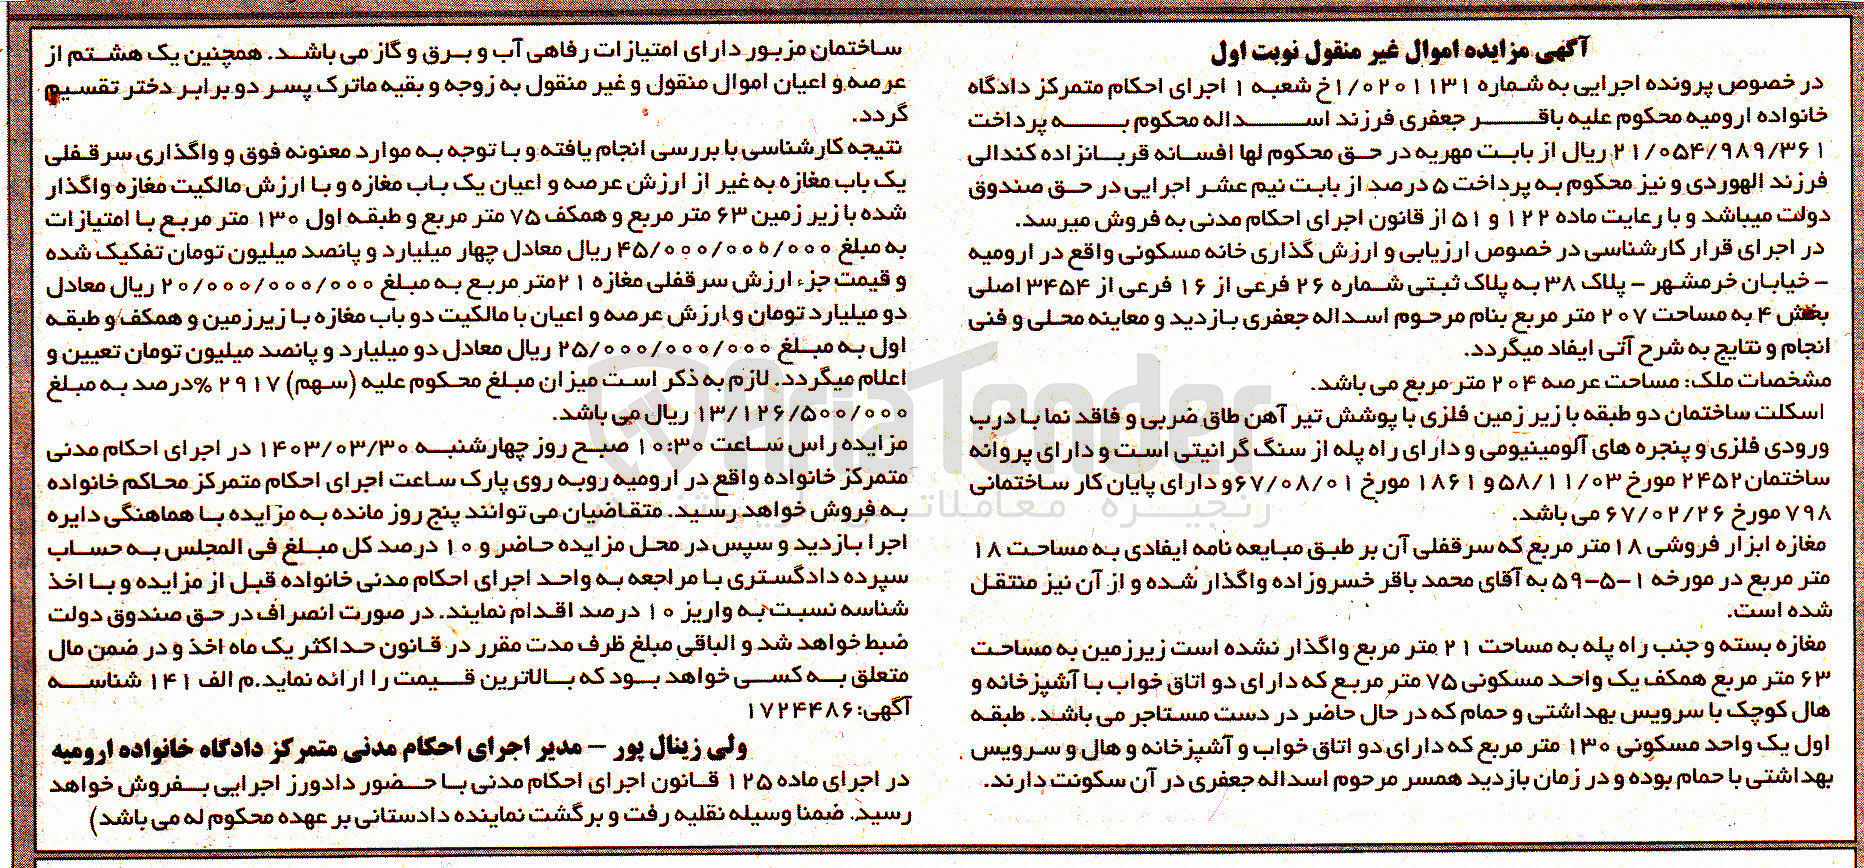 آگهی مزایده اموال غیر منقول نوبت اول
در خصوص پرونده اجرایی به شماره ۱/۰۲۰۱۱۳۱خ شعبه ۱ اجرای احکام متمرکز دادگاه
خانواده ارومیه محکوم علیه باقر جعفری فرزند اسداله محکوم به پرداخت
۲۱/۰۵۴/۹۸۹/۳۶۱ ریال از بابت مهریه در حق محکوم لها افسانه قربانزاده کندالی
فرزند الهوردی و نیز محکوم به پرداخت ۵ درصد از بابت نیم عشر اجرایی در حق صندوق
دولت میباشد و با رعایت ماده ۱۲۲ و ۵۱ از قانون اجرای احکام مدنی به فروش میرسد.
در اجرای قرار کارشناسی در خصوص ارزیابی و ارزش گذاری خانه مسکونی واقع در ارومیه
- خیابان خرمشهر - پلاک ۳۸ به پلاک ثبتی شماره ۲۶ فرعی از ۱۶ فرعی از ۳۴۵۴ اصلی
بخش ۴ به مساحت ۲۰۷ متر مربع بنام مرحوم اسداله جعفری بازدید و معاینه محلی و فنی
انجام و نتایج به شرح آتی ایفاد میگردد.
مشخصات ملک: مساحت عرصه ۲۰۴ متر مربع می باشد.
اسکلت ساختمان دو طبقه با زیر زمین فلزی با پوشش تیر آهن طاق ضربی و فاقد نما با درب
ورودی فلزی و پنجره های آلومینیومی و دارای راه پله از سنگ گرانیتی است و دارای پروانه
ساختمان۲۴۵۲ مورخ ۵۸/۱۱/۰۳و ۱۸۶۱ مورخ ۶۷/۰۸/۰۱و دارای پایان کار ساختمانی
۷۹۸ مورخ ۶۷/۰۲/۲۶ می باشد.
مغازه ابزار فروشی ۱۸متر مربع که سرقفلی آن بر طبق مبایعه نامه ایفادی به مساحت ۱۸
متر مربع در مورخه ۱-۵-۵۹ به آقای محمد باقر خسروزاده واگذار شده و از آن نیز منتقل
شده است.
مغازه بسته و جنب راه پله به مساحت ۲۱ متر مربع واگذار نشده است زیرزمین به مساحت
۶۳ متر مربع همکف یک واحد مسکونی ۷۵ متر مربع که دارای دو اتاق خواب با آشپزخانه و
هال کوچک با سرویس بهداشتی و حمام که در حال حاضر در دست مستاجر می باشد. طبقه
اول یک واحد مسکونی ۱۳۰ متر مربع که دارای دو اتاق خواب و آشپزخانه و هال و سرویس
بهداشتی با حمام بوده و در زمان بازدید همسر مرحوم اسداله جعفری در آن سکونت دارند.
ساختمان مزبور دارای امتیازات رفاهی آب و برق و گاز می باشد. همچنین یک هشتم از
عرصه و اعیان اموال منقول و غیر منقول به زوجه و بقیه ماترک پسر دو برابر دختر تقسیم
گردد.
نتیجه کارشناسی با بررسی انجام یافته و با توجه به موارد معنونه فوق و واگذاری سرقفلی
یک باب مغازه به غیر از ارزش عرصه و اعیان یک باب مغازه و با ارزش مالکیت مغازه واگذار
شده با زیر زمین ۶۳ متر مربع و همکف ۷۵ متر مربع و طبقه اول ۱۳۰ متر مربع با امتیازات
به مبلغ ۴۵/۰۰۰/۰۰۰/۰۰۰ ریال معادل چهار میلیارد و پانصد میلیون تومان تفکیک شده
و قیمت جزء ارزش سرقفلی مغازه ۲۱متر مربع به مبلغ ۲۰/۰۰۰/۰۰۰/۰۰۰ ریال معادل
دو میلیارد تومان و ارزش عرصه و اعیان با مالکیت دو باب مغازه با زیرزمین و همکف و طبقه
اول به مبلغ ۲۵/۰۰۰/۰۰۰/۰۰۰ ریال معادل دو میلیارد و پانصد میلیون تومان تعیین و
اعلام میگردد. لازم به ذکر است میزان مبلغ محکوم علیه (سهم) ۲۹۱۷ %درصد به مبلغ
۱۳/۱۲۶/۵۰۰/۰۰۰ ریال می باشد.
مزایده راس ساعت ۱۰:۳۰ صبح روز چهارشنبه ۱۴۰۳/۰۳/۳۰ در اجرای احکام مدنی
متمرکز خانواده واقع در ارومیه روبه روی پارک ساعت اجرای احکام متمرکز محاکم خانواده
به فروش خواهد رسید. متقاضیان می توانند پنج روز مانده به مزایده با هماهنگی دایره
اجرا بازدید و سپس در محل مزایده حاضر و ۱۰ درصد کل مبلغ فی المجلس به حساب
سپرده دادگستری با مراجعه به واحد اجرای احکام مدنی خانواده قبل از مزایده و با اخذ
شناسه نسبت به واریز ۱۰ درصد اقدام نمایند. در صورت انصراف در حق صندوق دولت
ضبط خواهد شد و الباقی مبلغ ظرف مدت مقرر در قانون حداکثر یک ماه اخذ و در ضمن مال
متعلق به کسی خواهد بود که بالاترین قیمت را ارائه نماید.م الف ۱۴۱ شناسه
آگهی:۱۷۲۴۴۸۶
ولی زینال پور - مدیر اجرای احکام مدنی متمرکز دادگاه خانواده ارومیه
در اجرای ماده ۱۲۵ قانون اجرای احکام مدنی با حضور دادورز اجرایی بفروش خواهد
رسید. ضمنا وسیله نقلیه رفت و برگشت نماینده دادستانی بر عهده محکوم له می باشد)
AriaTender